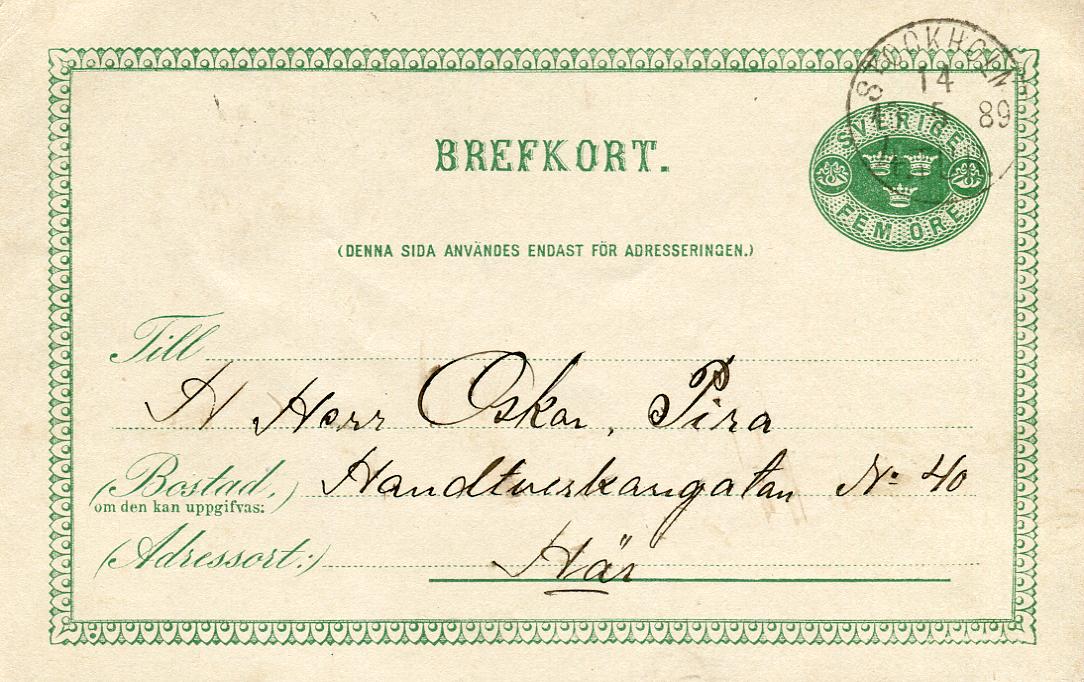 STOCKHOLM
14
5 89
BREFKORT.
SVERIGE
FEM ÖRE
(DENNA SIDA ANVÄNDES ENDAST FÖR ADRESSERINGEN.)
Till
H Herr Oskar, Pira
(Bostad,) Handtverkaregatan No 40
om den kan uppgifvas:
(Adressort:) Här